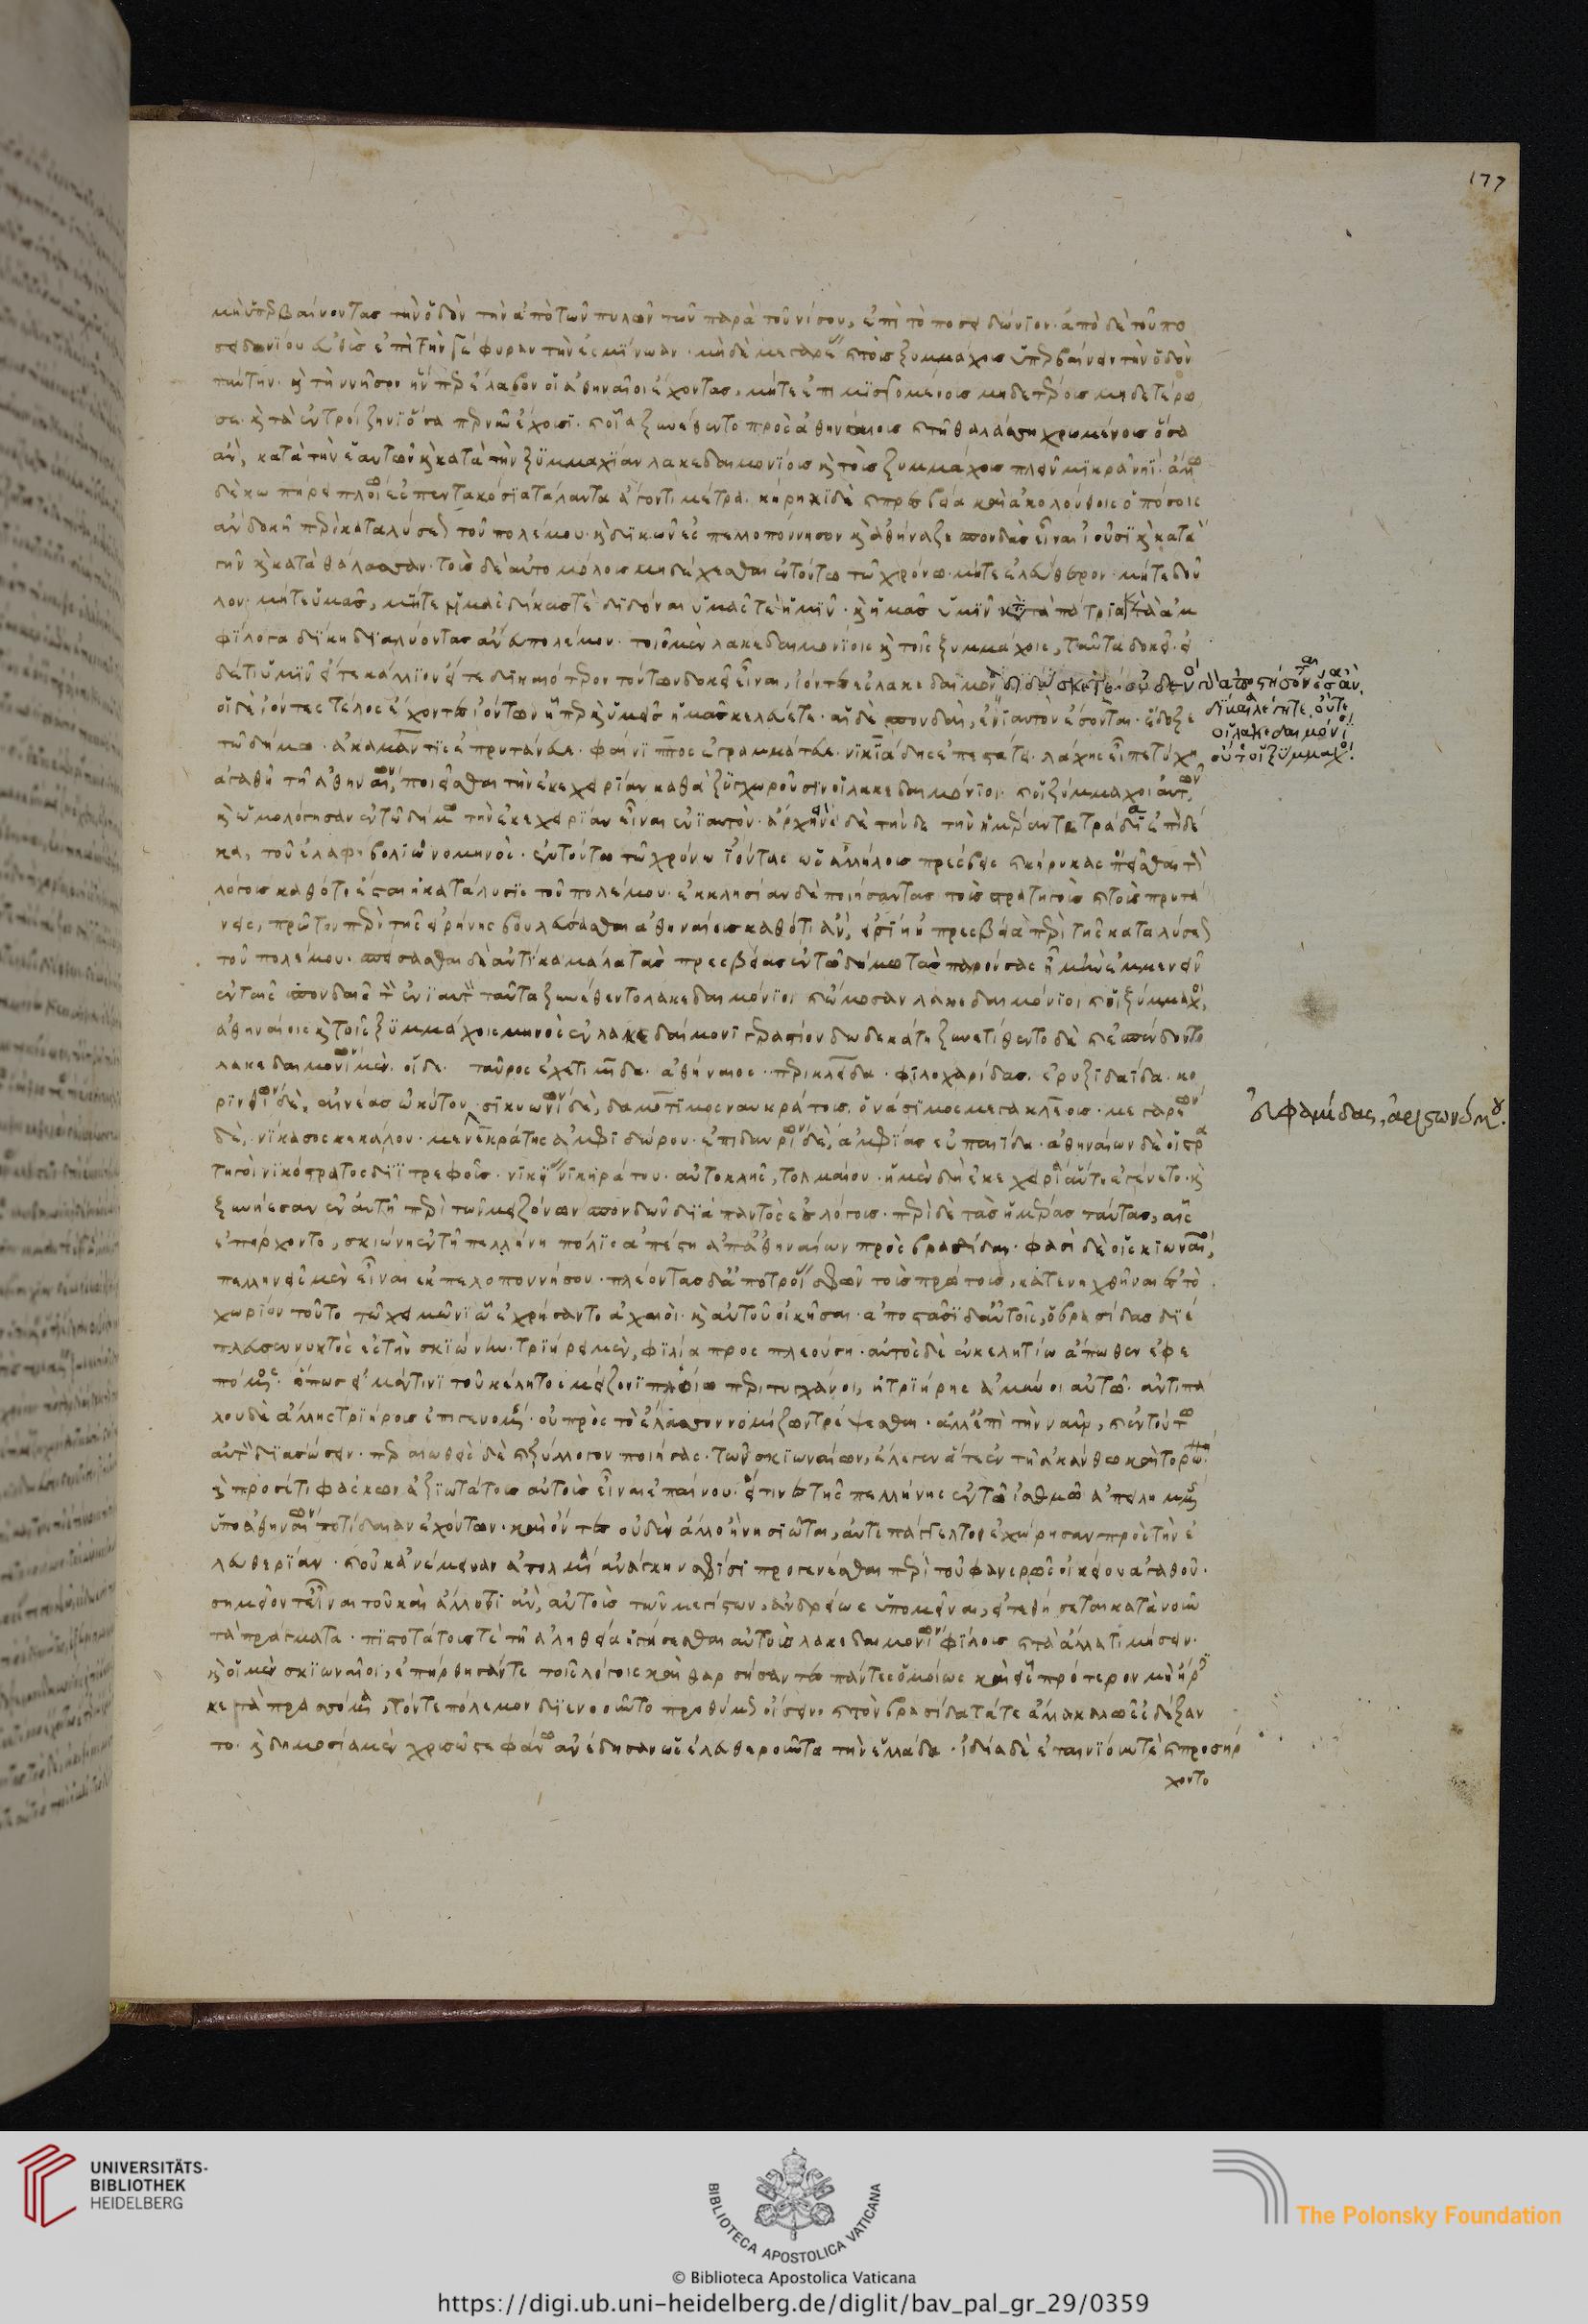 177
μὴ ὑπερβαίνοντας τὴν ὁδὸν τὴν ἀπὸ τῶν πυλῶν τῶν παρὰ τοῦ νίσου, ἐπὶ τὸ ποσειδώνιον· ἀπὸ δὲ τοῦ πο
σειδωνίου εὐθὺς ἐπὶ τὴν γέφυραν τὴν ἐς μίνωαν· μὴ δὲ μεγαρέας ϗ τοὺς ξυμμάχους ὑπερβαίνειν τὴν ὁδὸν
ταύτην· ϗ τὴν νῆσον ἥν περ ἔλαβον οἱ ἀθηναῖοι ἔχοντας, μήτε ἐπιμισγομένους μηδετέρους μηδετέρω
σε· ϗ τὰ ἐν τροιζῆνι ὅσα περ νῦν ἔχουσι· ϗ οἷα ξυνέθεντο πρὸς ἀθηναίους ϗ τῇ θαλάσσῃ χρωμένους ὅσα
ἂν, κατὰ τὴν ἑαυτῶν ϗ κατὰ τὴν ξυμμαχίαν λακεδαιμονίους ϗ τοὺς ξυμμάχους πλεῖν μὴ μακρᾷ νηῒ· ἄλλῳ
δὲ κωπήρει πλοίῳ ἐς πεντακόσια τάλαντα ἄγοντι μέτρα. κήρυκι δὲ ϗ πρεσβείᾳ καὶ ἀκολούθοις ὁπόσοις
ἂν δοκῇ περὶ καταλύσεως τοῦ πολέμου· ϗ δικῶν ἐς πελοπόννησον ϗ ἀθήναζε σπονδὰς εἶναι ἰοῦσι ϗ κατὰ
γῆν ϗ κατὰ θάλασσαν· τοὺς δὲ αὐτομόλους μὴ δέχεσθαι ἐν τούτῳ τῷ χρόνῳ· μήτε ἐλεύθερον· μήτε δοῦ
λον· μήτε ὑμᾶς, μήτε ἡμᾶς δίκας τὲ διδόναι ὑμᾶς τὲ ἡμῖν· ϗ ἡμᾶς ὑμῖν κατὰ τὰ πάτρια τὰ ἀμ
φίλογα δίκῃ διαλύοντας ἄνευ πολέμου· τοῖς μὲν λακεδαιμονίοις ϗ τοῖς ξυμμάχοις, ταῦτα δοκεῖ· εἰ
δέ τι ὑμῖν εἴτε κάλλιον εἴτε δικαιότερον τούτων δοκεῖ εἶναι, ἰόντες ἐς λακεδαίμονα διδάσκετε· οὐδενὸς γὰρ ἀποστήσονται, ὅσα ἂν,
δίκαια λέγητε οὔτε
οἱ λακεδαιμόνιοι
οὔτε οἱ ξύμμαχοι.
οἱ δὲ ἰόντες τέλος ἔχοντες ἰόντων ᾗ περ ϗ ὑμεῖς ἡμᾶς κελεύετε· αἱ δὲ σπονδαὶ, ἐνιαυτὸν ἔσονται· ἔδοξε
τῷ δήμῳ· ἀκαμαντὶς ἐπρυτάνευε· φαίνιππος ἐγραμμάτευε· νικιάδης ἐπεστάτει· λάχης εἶπε τύχῃ
ἀγαθῇ τῇ ἀθηναίων, ποιεῖσθαι τὴν ἐκεχειρίαν καθὰ ξυγχωροῦσιν οἱ λακεδαιμόνιοι· ϗ οἱ ξύμμαχοι αὐτῶν,
ϗ ὡμολόγησαν ἐν τῷ δήμῳ τὴν ἐκεχειρίαν εἶναι ἐνιαυτὸν· ἄρχειν δὲ τήνδε τὴν ἡμέραν τετράδα ἐπὶ δέ
κα, τοῦ ἐλαφηβολιῶνος μηνὸς· ἐν τούτῳ τῷ χρόνῳ ἰόντας ὡς ἀλλήλους πρέσβεις ϗ κήρυκας ποιεῖσθαι τοὺς
λόγους καθότι ἔσται ἡ κατάλυσις τοῦ πολέμου· ἐκκλησίαν δὲ ποιήσαντας τοὺς στρατηγοὺς ϗ τοὺς πρυτά
νεις, πρῶτον περὶ τῆς εἰρήνης βουλεύσασθαι ἀθηναίους καθότι ἂν, εἰσίῃ ἡ πρεσβεία περὶ τῆς καταλύσεως
τοῦ πολέμου· σπείσασθαι δὲ αὐτίκα μάλα τὰς πρεσβείας ἐν τῷ δήμῳ τὰς παρούσας ἦ μὴν ἐμμενεῖν
ἐν ταῖς σπονδαῖς τὸν ἐνιαυτόν ταῦτα ξυνέθεντο λακεδαιμόνιοι ϗ ὤμοσαν λακεδαιμόνιοι ϗ οἱ ξύμμαχοι,
ἀθηναίοις ϗ τοῖς ξυμμάχοις μηνὸς ἐν λακεδαίμονι γεραστίου δωδεκάτῃ ξυνετίθεντο δὲ ϗ ἐσπένδοντο
λακεδαιμονίων μὲν· οἵδε· ταῦρος ἐχετιμίδα· ἀθήναιος· περικλείδα· φιλοχαρίδας· ἐρυξιδαΐδα· κο
ρινθίων δὲ, αἰνέας ὠκύτου· σικυωνίων δὲ, δαμότιμος ναυκράτους· ὀνάσιμος μεγακλέους· μεγαρέων
εὐφαμίδας, ἀριστωνύμου.
δὲ, νίκασος κεκάλου· μενεκράτης ἀμφιδώρου· ἐπιδαυρίων δὲ, ἀμφίας εὐπαιίδα· ἀθηναίων δὲ οἱ στρα
τηγοὶ νικόστρατος διϊτρεφοῦς· νικίας νικηράτου· αὐτοκλῆς, τολμαίου· ἡ μὲν δὴ ἐκεχειρία αὕτη ἐγένετο· ϗ
ξυνῄεσαν ἐν αὐτῇ περὶ τῶν μειζόνων σπονδῶν διὰ παντὸς ἐς λόγους· περὶ δὲ τὰς ἡμέρας ταύτας, αἷς
ἐπήρχοντο, σκιώνη ἐν τῇ παλλήνῃ πόλις ἀπέστη ἀπ' ἀθηναίων πρὸς βρασίδαν· φασὶ δὲ οἱ σκιωναῖοι,
παλληνεῖς μὲν εἶναι ἐκ πελοποννήσου· πλέοντας δ' ἀπὸ τροίας σφῶν τοὺς πρώτους, κατενηχθῆναι ἐς τὸ
χωρίον τοῦτο τῷ χειμῶνι ᾧ ἐχρήσαντο ἀχαιοὶ· ϗ αὐτοῦ οἰκῆσαι· ἀποστᾶσι δ' αὐτοῖς, ὁ βρασίδας διέ
πλευσε νυκτὸς ἐς τὴν σκιώνην· τριήρει μὲν, φιλίᾳ προπλεούσῃ· αὐτὸς δὲ ἐν κελητίῳ ἄπωθεν ἐφε
πόμενος· ὅπως εἰ μέν τινι τοῦ κέλητος μείζονι πλοίῳ περιτυγχάνοι, ἡ τριήρης ἀμύνοι αὐτῷ· ἀντιπά
λου δὲ ἄλλης τριήρους ἐπιγενομένης· οὐ πρὸς τὸ ἔλασσον νομίζων τρέψεσθαι· ἀλλ' ἐπὶ τὴν ναῦν, ϗ ἐν τούτῳ
αὐτὸν διασώσειν· περαιωθεὶς δὲ ϗ ξύλλογον ποιήσας· τῶν σκιωναίων, ἔλεγεν ἅ τε ἐν τῇ ἀκάνθῳ καὶ τορώνῃ·
ϗ προσέτι φάσκων ἀξιωτάτους αὐτοὺς εἶναι ἐπαίνου· οἵτινες τῆς παλλήνης ἐν τῷ ἰσθμῷ ἀπειλημμένης
ὑπὸ ἀθηναίων ποτίδαιαν ἐχόντων· καὶ ὄντες οὐδὲν ἄλλο ἢ νησιῶται, αὐτεπάγγελτοι ἐχώρησαν πρὸς τὴν ἐ
λευθερίαν· ϗ οὐκ ἀνέμειναν ἀτολμίᾳ ἀνάγκην σφίσι προσγενέσθαι περὶ τοῦ φανερῶς οἰκείου ἀγαθοῦ·
σημεῖόν τ' εἶναι τοῦ καὶ ἄλλο τι ἂν, αὐτοὺς τῶν μεγίστων, ἀνδρείως ὑπομεῖναι, εἰ τεθήσεται κατὰ νοῦν
τὰ πράγματα· πιστοτάτους τὲ τῇ ἀληθείᾳ ἡγήσεσθαι αὐτοὺς λακεδαιμονίων φίλους ϗ τὰ ἄλλα τιμήσειν·
ϗ οἱ μὲν σκιωναῖοι, ἐπήρθησάν τε τοῖς λόγοις καὶ θαρσήσαντες πάντες ὁμοίως καὶ οἷς πρότερον μὴ ἤρε
σκε τὰ πρασσόμενα, τόν τε πόλεμον διενοοῦντο προθύμως οἴσειν· ϗ τὸν βρασίδαν τά τε ἄλλα καλῶς ἐδέξαν
το· ϗ δημοσίᾳ μὲν χρυσῷ στεφάνῳ ἀνέδησαν ὡς ἐλευθεροῦντα τὴν ἑλλάδα· ἰδίᾳ δὲ ἐταινίουν τὲ ϗ προσήρ
χοντο
UNIVERSITÄTS-
BIBLIOTHEK
HEIDELBERG
BIBLIOTECA APOSTOLICA VATICANA
The Polonsky Foundation
© Biblioteca Apostolica Vaticana
https://digi.ub.uni-heidelberg.de/diglit/bav_pal_gr_29/0359